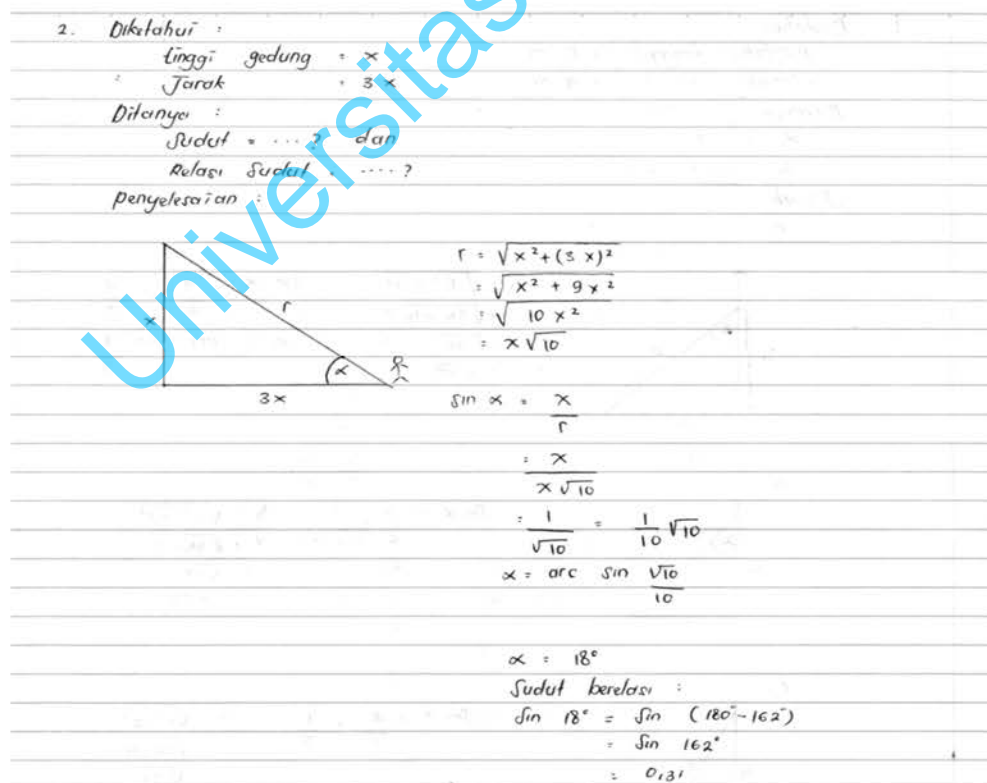 2. Diketahui :
tinggi gedung = x
Jarak = 3x
Ditanya :
Sudut = ....? dan
Relasi Sudut = ....?
Penyelesaian :
x
r
α
3x
r = √x² + (3x)²
= √x² + 9x²
= √10x²
= x√10
sin α = x/r
= x/x√10
= 1/√10 = 1/10 √10
α = arc sin √10/10
α = 18°
Sudut berelasi :
Sin 18° = Sin (180° - 162°)
= Sin 162°
= 0,31
Universitas